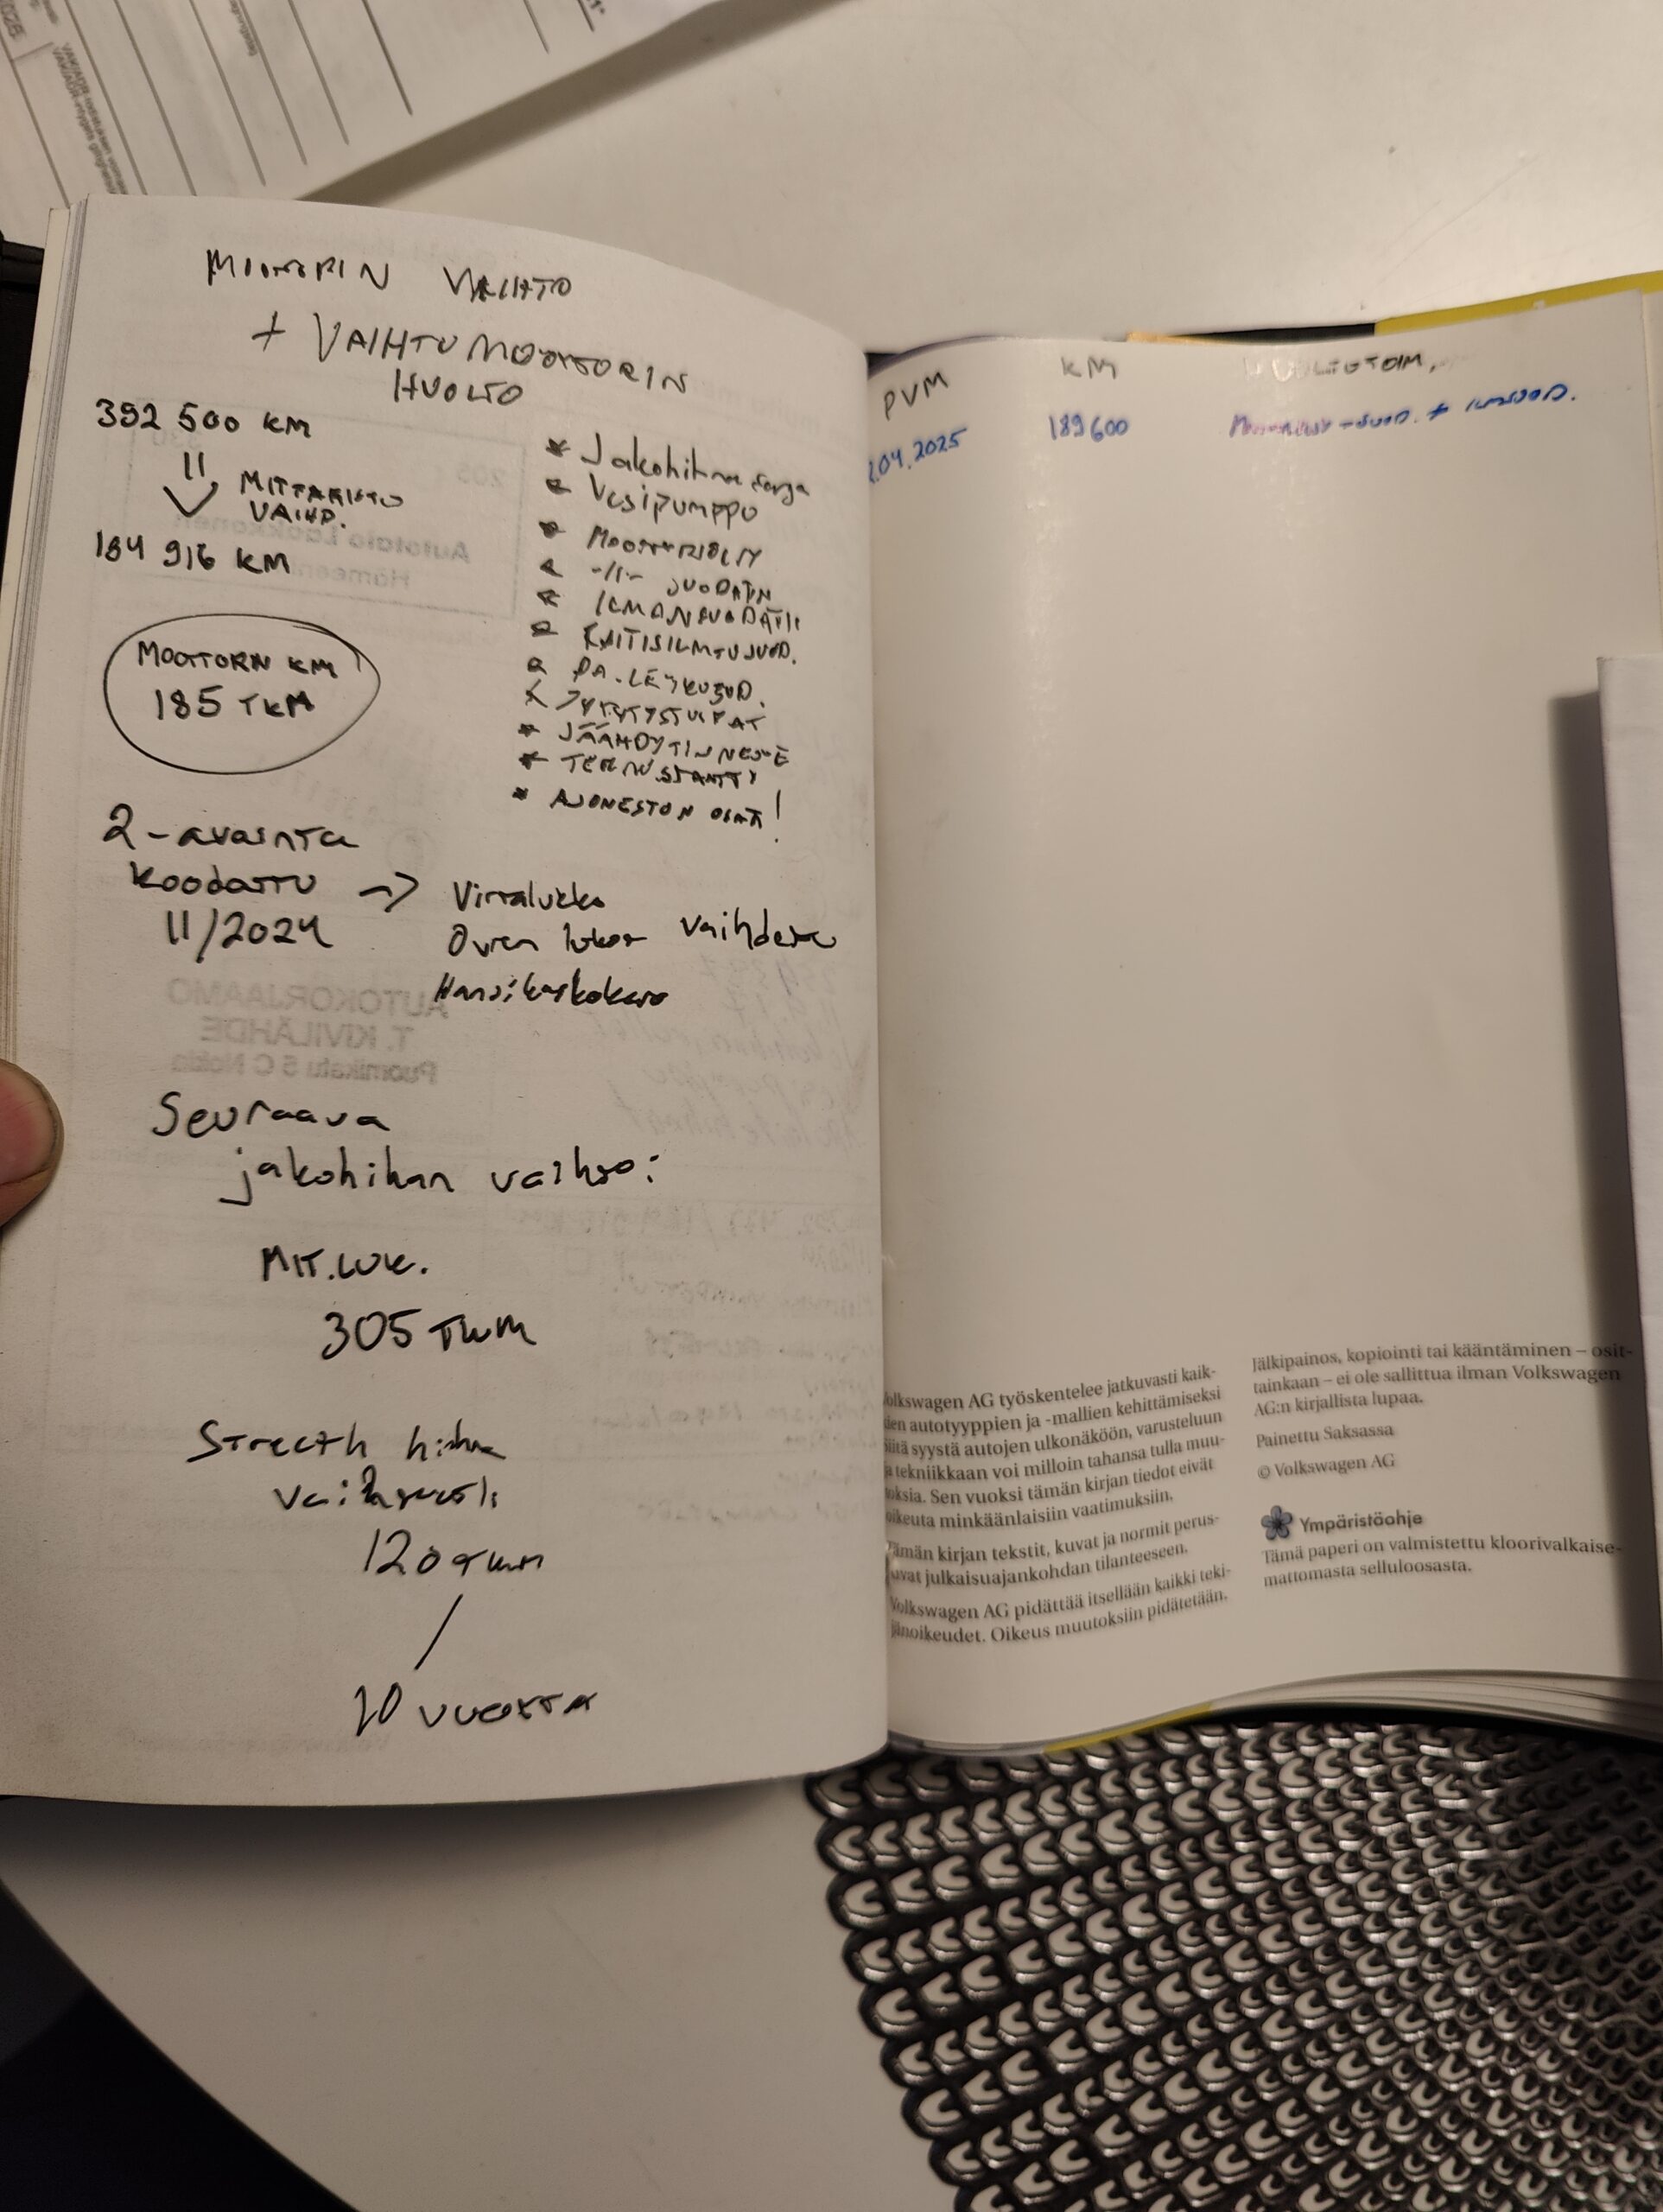 MOOTTORIN VAIHTO
+ VAIHTUMOOTTORIN
HUOLTO
392 500 KM
MITTARISTO
VAIHD.
184 916 KM
MOOTTORIN KM
185 TKM
* Jakohihna sarja
* Vesipumppu
* MOOTTORIÖLJY
* -11- SUODATIN
* ILMANSUODATIN
* RAITISILMASUOD.
* PA. LEYKUSUD.
* SYTYTYSTULPAT
* JÄÄHDYTINNESTE
* TERMOSTAATTI
* AJONESTON OSAT!
2-avainta
koodattu ->
11/2024
Virralukko
Oven lukot vaihdettu
Hansikaskotelo
Seuraava
jakohihnan vaihto:
MIT.LUK.
305 TKM
Strecth hihna
vaihtoväli
120 TKM
/
10 VUOTTA
PVM KM HUOLTOTOIM.
.04.2025 189600 Moottoriöljy -suod. + ilmsuod.
Volkswagen AG työskentelee jatkuvasti kaik-
ien autotyyppien ja -mallien kehittämiseksi
iitä syystä autojen ulkonäköön, varusteluun
a tekniikkaan voi milloin tahansa tulla muu-
oksia. Sen vuoksi tämän kirjan tiedot eivät
oikeuta minkäänlaisiin vaatimuksiin.
Tämän kirjan tekstit, kuvat ja normit perus-
uvat julkaisuajankohdan tilanteeseen.
Volkswagen AG pidättää itsellään kaikki teki-
jänoikeudet. Oikeus muutoksiin pidätetään.
Jälkipainos, kopiointi tai kääntäminen – osit-
tainkaan – ei ole sallittua ilman Volkswagen
AG:n kirjallista lupaa.
Painettu Saksassa
© Volkswagen AG
Ympäristöohje
Tämä paperi on valmistettu kloorivalkaise-
mattomasta selluloosasta.